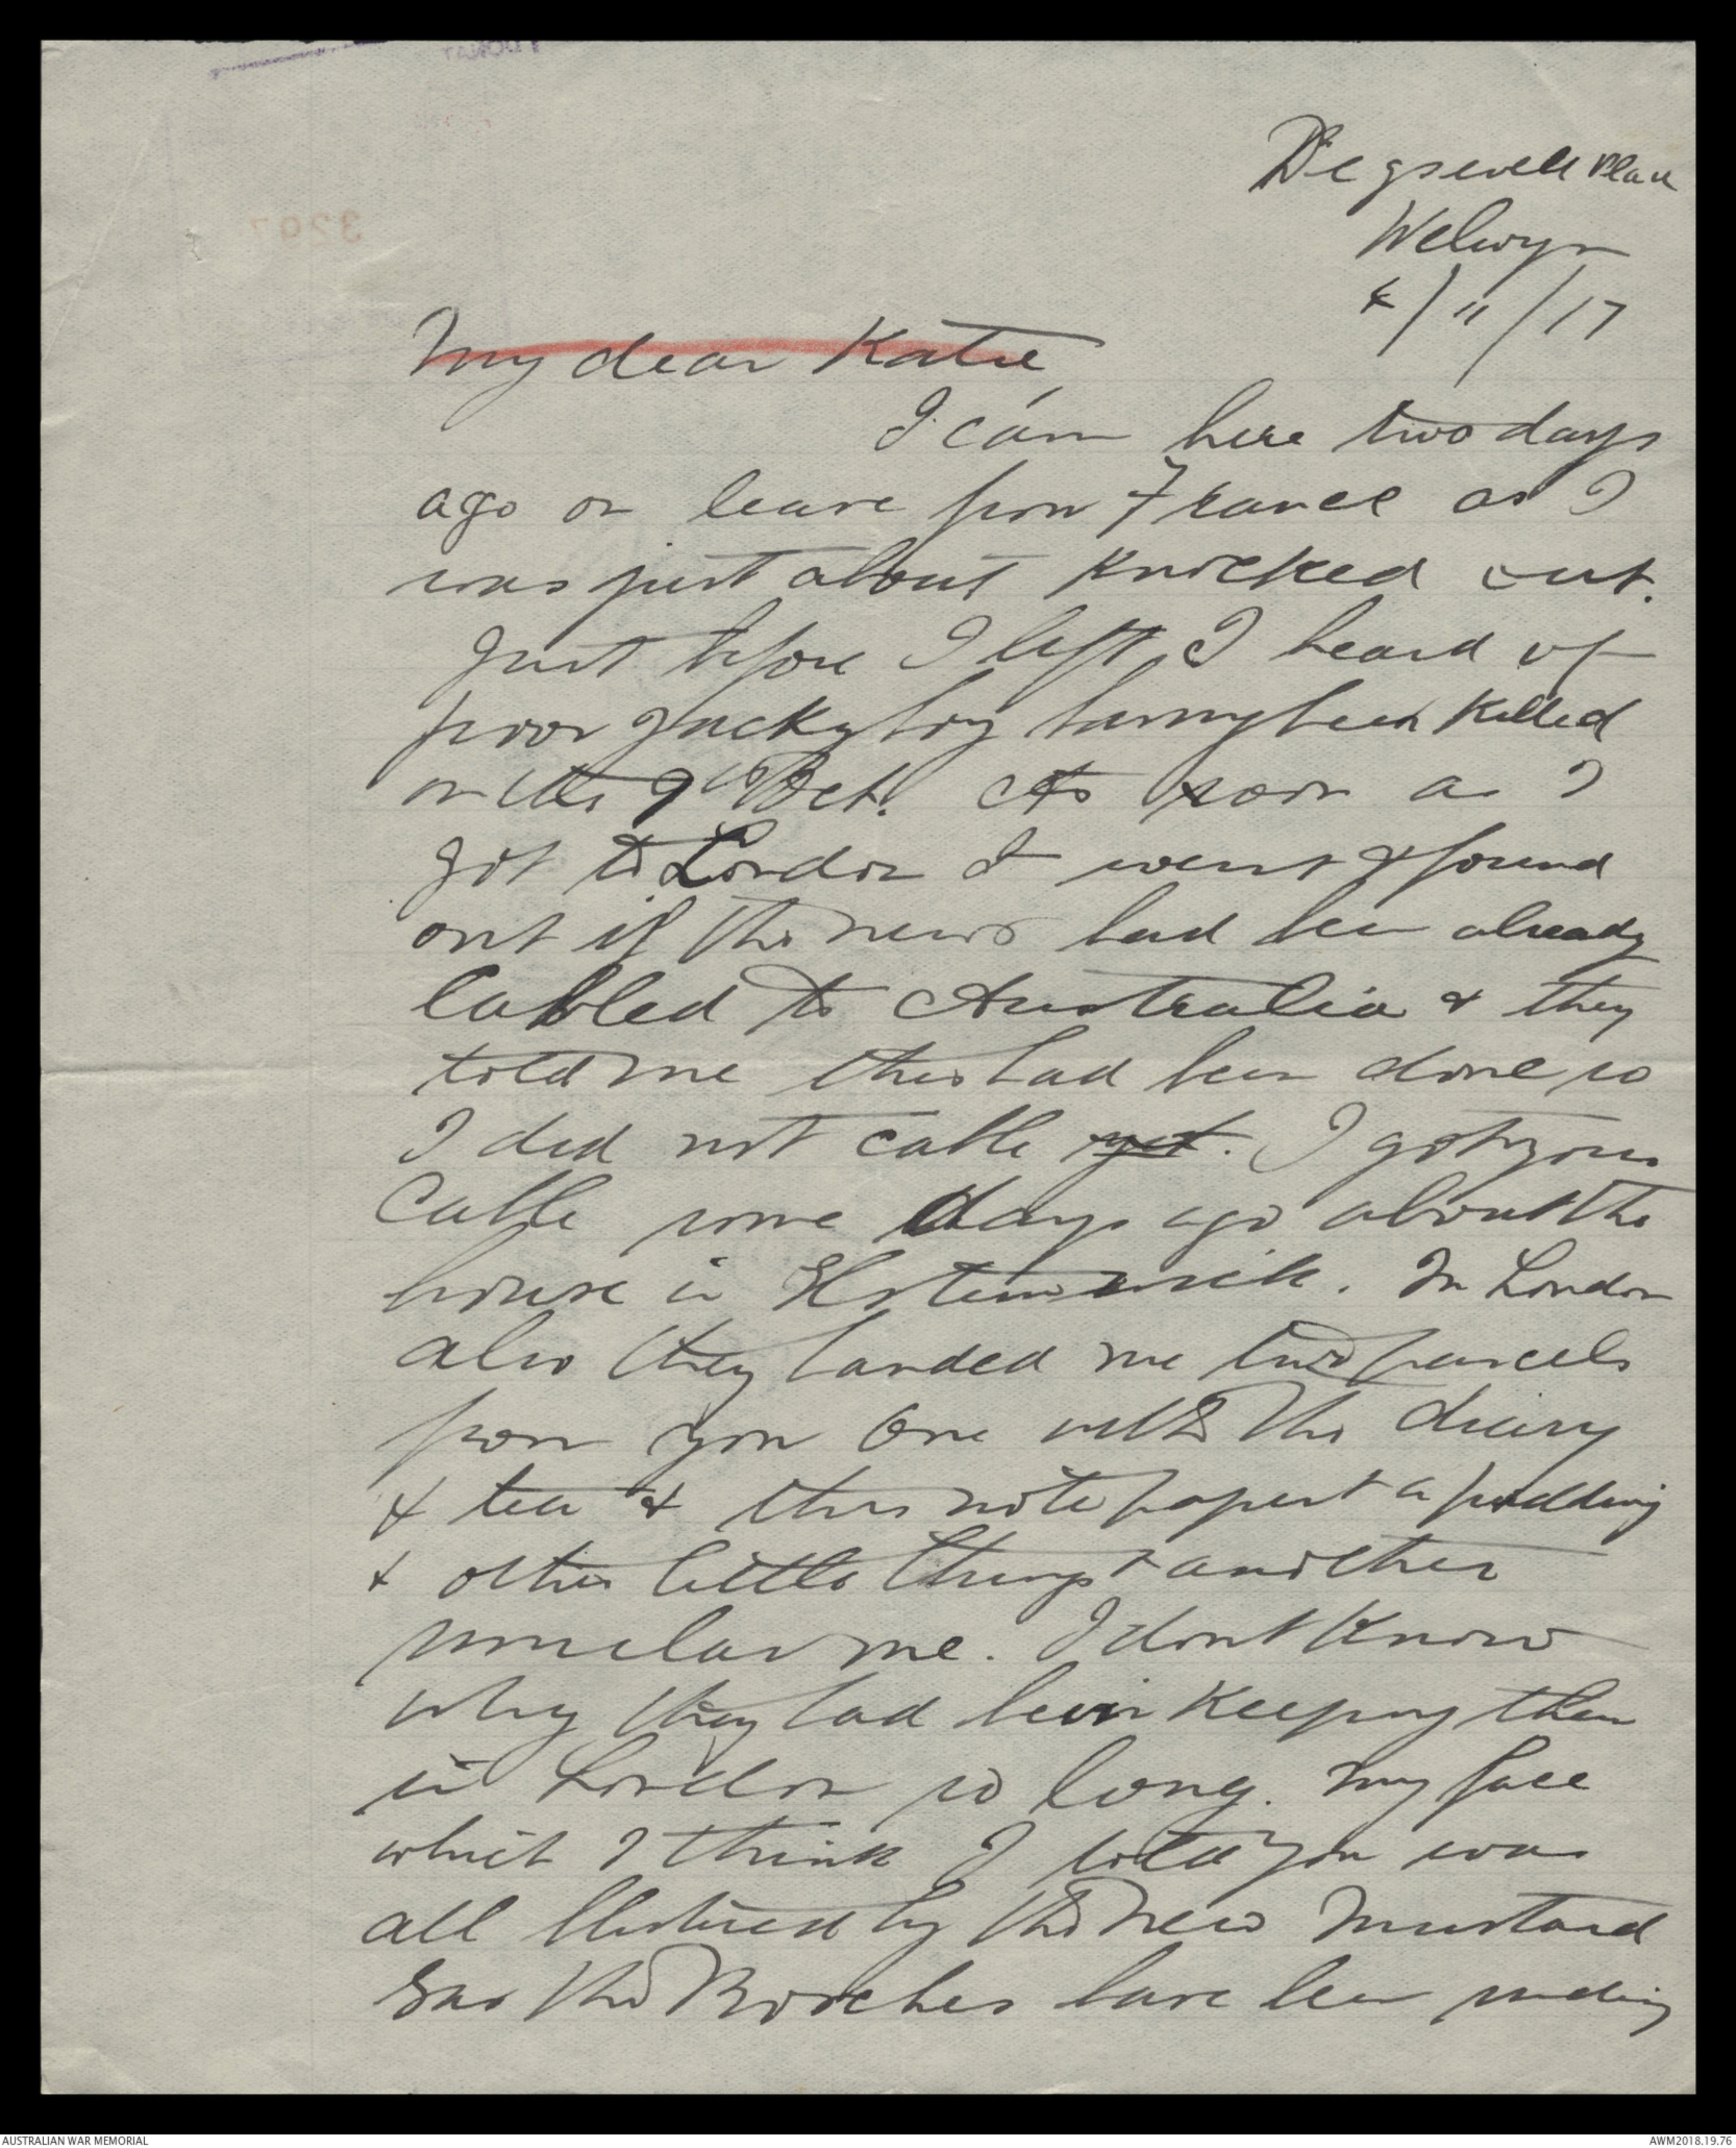 Degswell Place
Welwyn
4/11/17
My dear Katie
I cam here two days
ago on leave from France as I
was just about knocked out.
Just before I left I heard of
poor Jacky boy having been killed
on the 9th Oct. As soon as I
got to London I went & found
out if the news had been already
cabled to Australia & they
told me this had been done so
I did not cable yet. I got your
Cable some days ago about the
house in In London
also they handed me two parcels
from you One with the diary
& tea & this note paper & a pudding
& other little things & another
similar me. I dont know
why they had been keeping them
in London so long. My face
which I think I told you was
all blistered by the new mustard
gas the Bosches have been sending
3297
DONAT
AUSTRALIAN WAR MEMORIAL
AWM2018.19.76